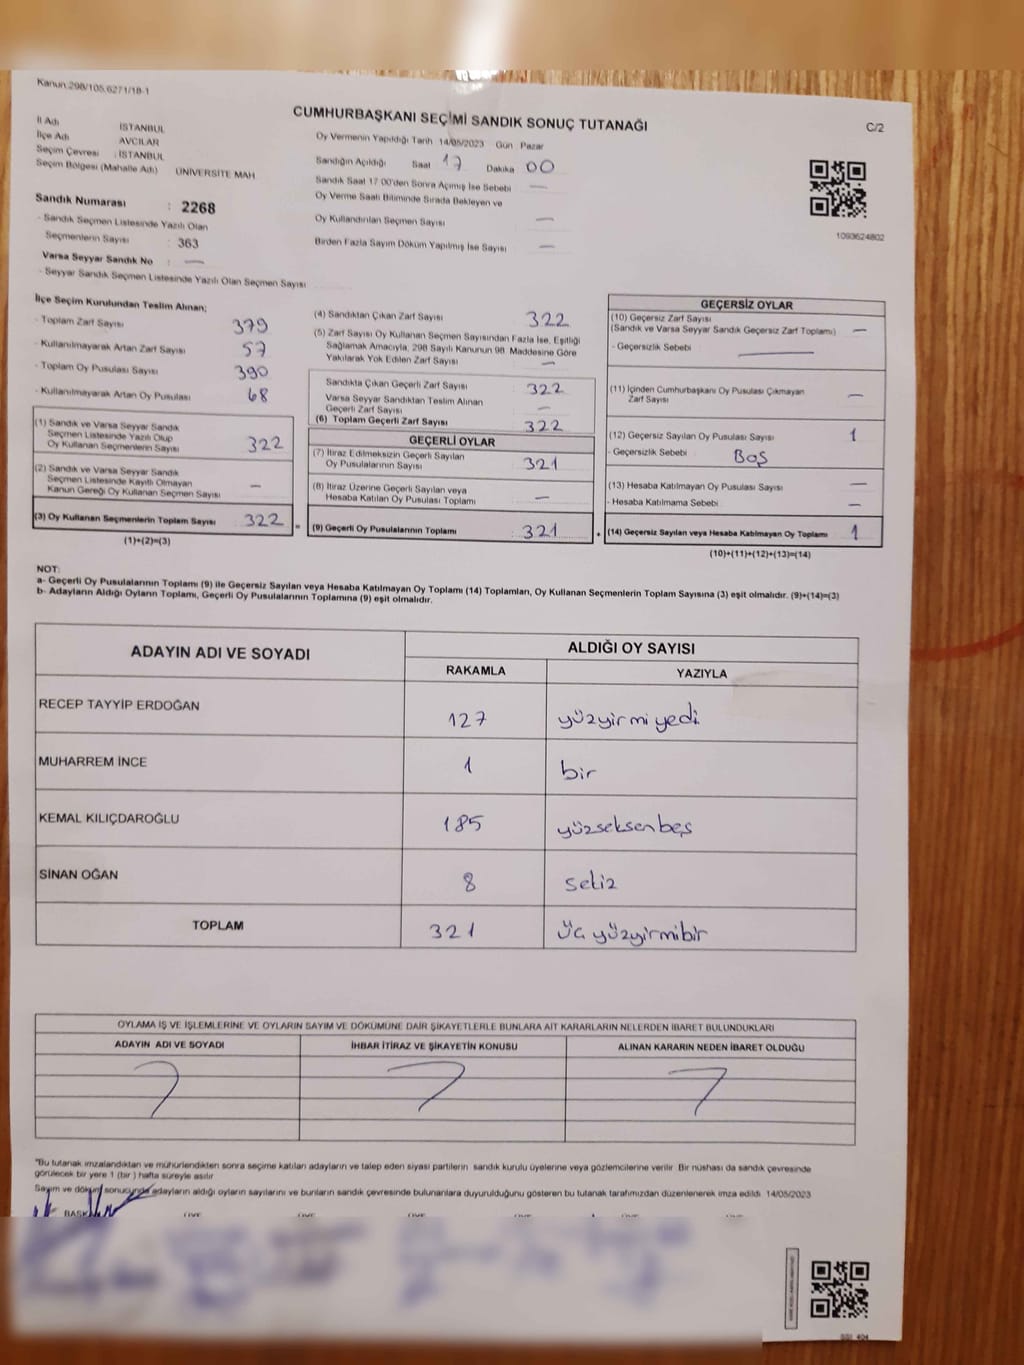 Kanun.298/105.6271/18-1
CUMHURBAŞKANI SEÇİMİ SANDIK SONUÇ TUTANAĞI
C/2
İl Adı İSTANBUL
İlçe Adı AVCILAR
Seçim Çevresi : İSTANBUL
Seçim Bölgesi (Mahalle Adı) ÜNİVERSİTE MAH
Sandık Numarası : 2268
- Sandık Seçmen Listesinde Yazılı Olan
Seçmenlerin Sayısı : 363
Varsa Seyyar Sandık No : —
- Seyyar Sandık Seçmen Listesinde Yazılı Olan Seçmen Sayısı
Oy Vermenin Yapıldığı Tarih 14/05/2023 Gün Pazar
Sandığın Açıldığı Saat 17 Dakika 00
Sandık Saat 17:00'den Sonra Açmış İse Sebebi —
Oy Verme Saati Bitiminde Sırada Bekleyen ve
Oy Kullandırılan Seçmen Sayısı —
Birden Fazla Sayım Döküm Yapılmış İse Sayısı —
1093624802
İlçe Seçim Kurulundan Teslim Alınan;
- Toplam Zarf Sayısı 379
- Kullanılmayarak Artan Zarf Sayısı 57
- Toplam Oy Pusulası Sayısı 390
- Kullanılmayarak Artan Oy Pusulası 68
(1) Sandık ve Varsa Seyyar Sandık
Seçmen Listesinde Yazılı Olup
Oy Kullanan Seçmenlerin Sayısı 322
(2) Sandık ve Varsa Seyyar Sandık
Seçmen Listesinde Kayıtlı Olmayan
Kanun Gereği Oy Kullanan Seçmen Sayısı —
(3) Oy Kullanan Seçmenlerin Toplam Sayısı 322 =
(1)+(2)=(3)
(4) Sandıktan Çıkan Zarf Sayısı 322
(5) Zarf Sayısı Oy Kullanan Seçmen Sayısından Fazla İse, Eşitliği
Sağlamak Amacıyla, 298 Sayılı Kanunun 98. Maddesine Göre
Yakılarak Yok Edilen Zarf Sayısı —
Sandıkta Çıkan Geçerli Zarf Sayısı 322
Varsa Seyyar Sandıktan Teslim Alınan
Geçerli Zarf Sayısı —
(6) Toplam Geçerli Zarf Sayısı 322
GEÇERLİ OYLAR
(7) İtiraz Edilmeksizin Geçerli Sayılan
Oy Pusulalarının Sayısı 321
(8) İtiraz Üzerine Geçerli Sayılan veya
Hesaba Katılan Oy Pusulası Toplamı —
(9) Geçerli Oy Pusulalarının Toplamı 321 +
GEÇERSİZ OYLAR
(10) Geçersiz Zarf Sayısı
(Sandık ve Varsa Seyyar Sandık Geçersiz Zarf Toplamı) —
- Geçersizlik Sebebi —
(11) İçinden Cumhurbaşkanı Oy Pusulası Çıkmayan
Zarf Sayısı —
(12) Geçersiz Sayılan Oy Pusulası Sayısı 1
- Geçersizlik Sebebi Boş
(13) Hesaba Katılmayan Oy Pusulası Sayısı —
- Hesaba Katılmama Sebebi —
(14) Geçersiz Sayılan veya Hesaba Katılmayan Oy Toplamı 1
(10)+(11)+(12)+(13)=(14)
NOT:
a- Geçerli Oy Pusulalarının Toplamı (9) ile Geçersiz Sayılan veya Hesaba Katılmayan Oy Toplamı (14) Toplamları, Oy Kullanan Seçmenlerin Toplam Sayısına (3) eşit olmalıdır. (9)+(14)=(3)
b- Adayların Aldığı Oyların Toplamı, Geçerli Oy Pusulalarının Toplamına (9) eşit olmalıdır.
ADAYIN ADI VE SOYADI ALDIĞI OY SAYISI
RAKAMLA YAZIYLA
RECEP TAYYİP ERDOĞAN 127 yüzyirmiyedi
MUHARREM İNCE 1 bir
KEMAL KILIÇDAROĞLU 185 yüzseksenbeş
SİNAN OĞAN 8 sekiz
TOPLAM 321 Üç yüzyirmibir
OYLAMA İŞ VE İŞLEMLERİNE VE OYLARIN SAYIM VE DÖKÜMÜNE DAİR ŞİKAYETLERLE BUNLARA AİT KARARLARIN NELERDEN İBARET BULUNDUKLARI
ADAYIN ADI VE SOYADI İHBAR İTİRAZ VE ŞİKAYETİN KONUSU ALINAN KARARIN NEDEN İBARET OLDUĞU
"Bu tutanak imzalandıktan ve mühürlendikten sonra seçime katılan adayların ve talep eden siyasi partilerin sandık kurulu üyelerine veya gözlemcilerine verilir Bir nüshası da sandık çevresinde
görülecek bir yere 1 (bir) hafta süreyle asılır
Sayım ve döküm sonucunda adayların aldığı oyların sayılarını ve bunların sandık çevresinde bulunanlara duyurulduğunu gösteren bu tutanak tarafımızdan düzenlenerek imza edildi 14/05/2023